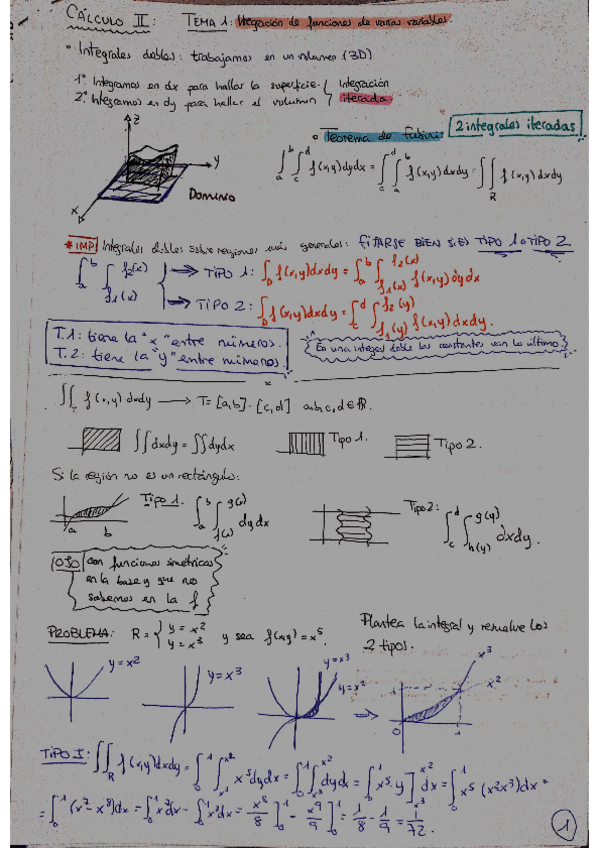 CÁLCULO II: TEMA 1: Integración de funciones de varias variables.
• Integrales dobles: trabajamos en un volumen (3D)
1º. Integramos en dx para hallar la superficie. } Integración
2º. Integramos en dy para hallar el volumen } iterada
z
y
x
DOMINIO
• Teorema de Fubini: 2 integrales iteradas
∫_a^b ∫_c^d f(x,y) dydx = ∫_c^d ∫_a^b f(x,y) dxdy = ∬_R f(x,y) dxdy
*IMP Integrales dobles sobre regiones más generales: FIJARSE BIEN SI ES TIPO 1 o TIPO 2
∫_a^b ∫_{f1(x)}^{f2(x)} → TIPO 1: ∫_D f(x,y)dxdy = ∫_a^b ∫_{f1(x)}^{f2(x)} f(x,y) dydx
→ TIPO 2: ∫_D f(x,y)dxdy = ∫_c^d ∫_{f1(y)}^{f2(y)} f(x,y) dxdy.
T.1: tiene la "x" entre números.
T.2: tiene la "y" entre números.
En una integral doble las constantes van lo último.
∬_T f(x,y) dxdy → T = [a,b]·[c,d] a,b,c,d ∈ ℝ.
∬dxdy = ∬dydx Tipo 1. Tipo 2.
Si la región no es un rectángulo:
a b Tipo 1. ∫_a^b ∫_{f(x)}^{g(x)} dydx
Tipo 2: ∫_c^d ∫_{h(y)}^{g(y)} dxdy.
OJO con funciones simétricas
en la base y que no
sabemos en la f
PROBLEMA: R = { y = x² y = x³ y sea f(x,y) = x⁵.
Plantea la integral y resuelve los
2 tipos.
y=x² y=x³ y=x³ y=x² → x³ x² 1 0 1
TIPO I: ∬_R f(x,y)dxdy = ∫_0^1 ∫_{x³}^{x²} x⁵dydx = ∫_0^1 ∫_{x³}^{x²} dydx = ∫_0^1 x⁵·y]_{x³}^{x²} dx = ∫_0^1 x⁵(x²x³)dx =
= ∫_0^1 (x⁷-x⁸)dx = ∫_0^1 x⁷dx - ∫_0^1 x⁸dx = x⁸/8]_0^1 - x⁹/9]_0^1 = 1/8 - 1/9 = 1/72.
1